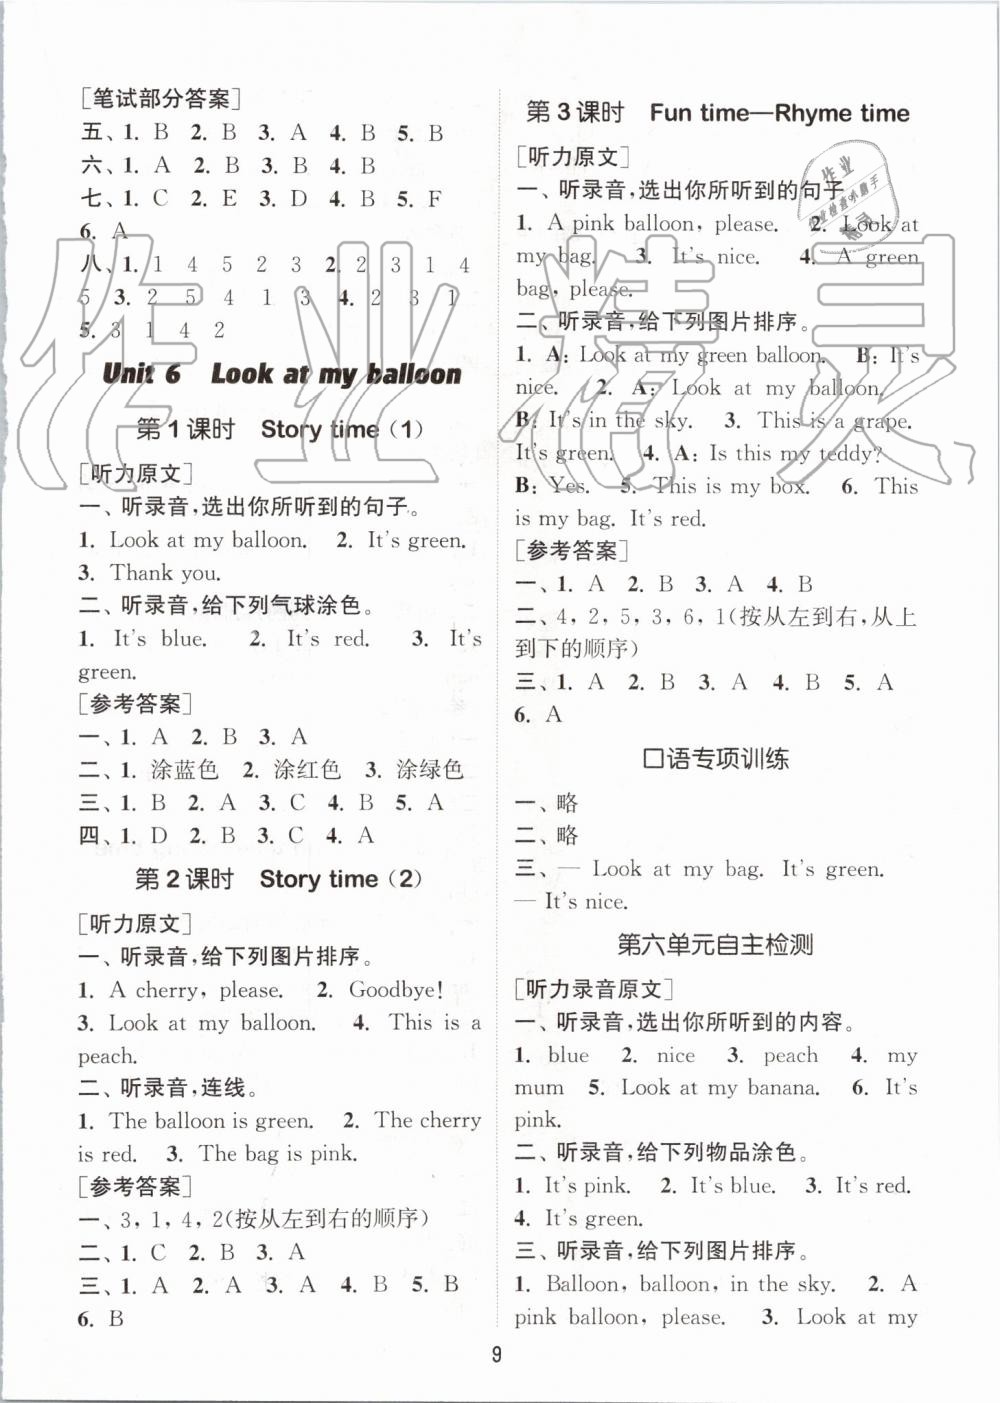 [笔试部分答案]
五、1. B 2. B 3. A 4. B 5. B
六、1. A 2. B 3. B 4. B
七、1. C 2. E 3. D 4. B 5. F
6. A
八、1. 1 4 5 2 3 2. 2 3 1 4
5 3. 2 5 4 1 3 4. 2 3 1
5. 3 1 4 2
Unit 6 Look at my balloon
第1课时 Story time (1)
[听力原文]
一、听录音,选出你所听到的句子。
1. Look at my balloon. 2. It's green.
3. Thank you.
二、听录音,给下列气球涂色。
1. It's blue. 2. It's red. 3. It's
green.
[参考答案]
一、1. A 2. B 3. A
二、1. 涂蓝色 2. 涂红色 3. 涂绿色
三、1. B 2. A 3. C 4. B 5. A
四、1. D 2. B 3. C 4. A
第2课时 Story time (2)
[听力原文]
一、听录音,给下列图片排序。
1. A cherry, please. 2. Goodbye!
3. Look at my balloon. 4. This is a
peach.
二、听录音,连线。
1. The balloon is green. 2. The cherry
is red. 3. The bag is pink.
[参考答案]
一、3, 1, 4, 2(按从左到右的顺序)
二、1. C 2. B 3. A
三、1. A 2. A 3. A 4. B 5. B
6. B
第3课时 Fun time—Rhyme time
[听力原文]
一、听录音,选出你所听到的句子
1. A pink balloon, please. 2. Look at
my bag. 3. It's nice. 4. A green
bag, please.
二、听录音,给下列图片排序。
1. A: Look at my green balloon. B: It's
nice. 2. A: Look at my balloon.
B: It's in the sky. 3. This is a grape.
It's green. 4. A: Is this my teddy?
B: Yes. 5. This is my box. 6. This
is my bag. It's red.
[参考答案]
一、1. A 2. B 3. A 4. B
二、4, 2, 5, 3, 6, 1(按从左到右,从上
到下的顺序)
三、1. A 2. B 3. A 4. B 5. A
6. A
口语专项训练
一、略
二、略
三、— Look at my bag. It's green.
— It's nice.
第六单元自主检测
[听力录音原文]
一、听录音,选出你所听到的内容。
1. blue 2. nice 3. peach 4. my
mum 5. Look at my banana. 6. It's
pink.
二、听录音,给下列物品涂色。
1. It's pink. 2. It's blue. 3. It's red.
4. It's green.
三、听录音,给下列图片排序。
1. Balloon, balloon, in the sky. 2. A
pink balloon, please. 3. Look at my
9
作业精灵
作业